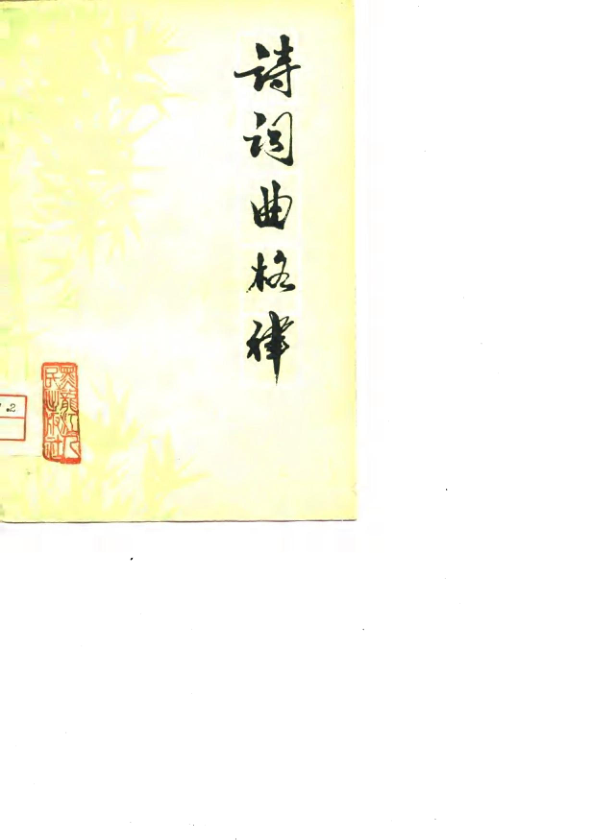 詩词曲格律
黑龍江人
民出版社
2